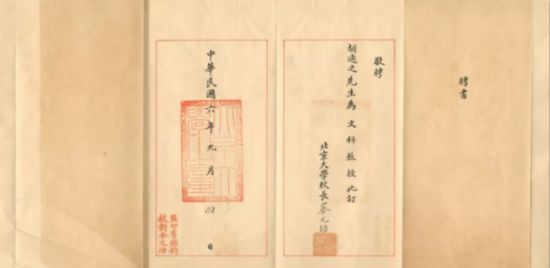 聘書
敬聘
胡適之先生為文科教授此訂
北京大學校長蔡元培
中華民國六年九月四日